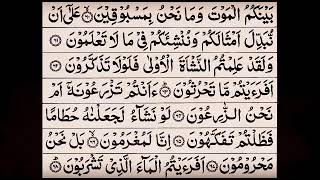 بَيْنَكُمُ الْمَوْتَ وَمَا نَحْنُ بِمَسْبُوْقِيْنَ ﴿۶۰﴾ عَلٰۤى اَنْ
نُّبَدِّلَ اَمْثَالَكُمْ وَنُنْشِئَكُمْ فِىْ مَا لَا تَعْلَمُوْنَ ﴿۶۱﴾
وَلَقَدْ عَلِمْتُمُ النَّشْاَةَ الْاُوْلٰى فَلَوْلَا تَذَكَّرُوْنَ ﴿۶۲﴾
اَفَرَءَيْتُمْ مَّا تَحْرُثُوْنَ ﴿۶۳﴾ ءَاَنْتُمْ تَزْرَعُوْنَهٗۤ اَمْ
نَحْنُ الزّٰرِعُوْنَ ﴿۶۴﴾ لَوْ نَشَآءُ لَجَعَلْنٰهُ حُطَامًا
فَظَلْتُمْ تَفَكَّهُوْنَ ﴿۶۵﴾ اِنَّا لَمُغْرَمُوْنَ ﴿۶۶﴾ بَلْ نَحْنُ
مَحْرُوْمُوْنَ ﴿۶۷﴾ اَفَرَءَيْتُمُ الْمَآءَ الَّذِىْ تَشْرَبُوْنَ ﴿۶۸﴾